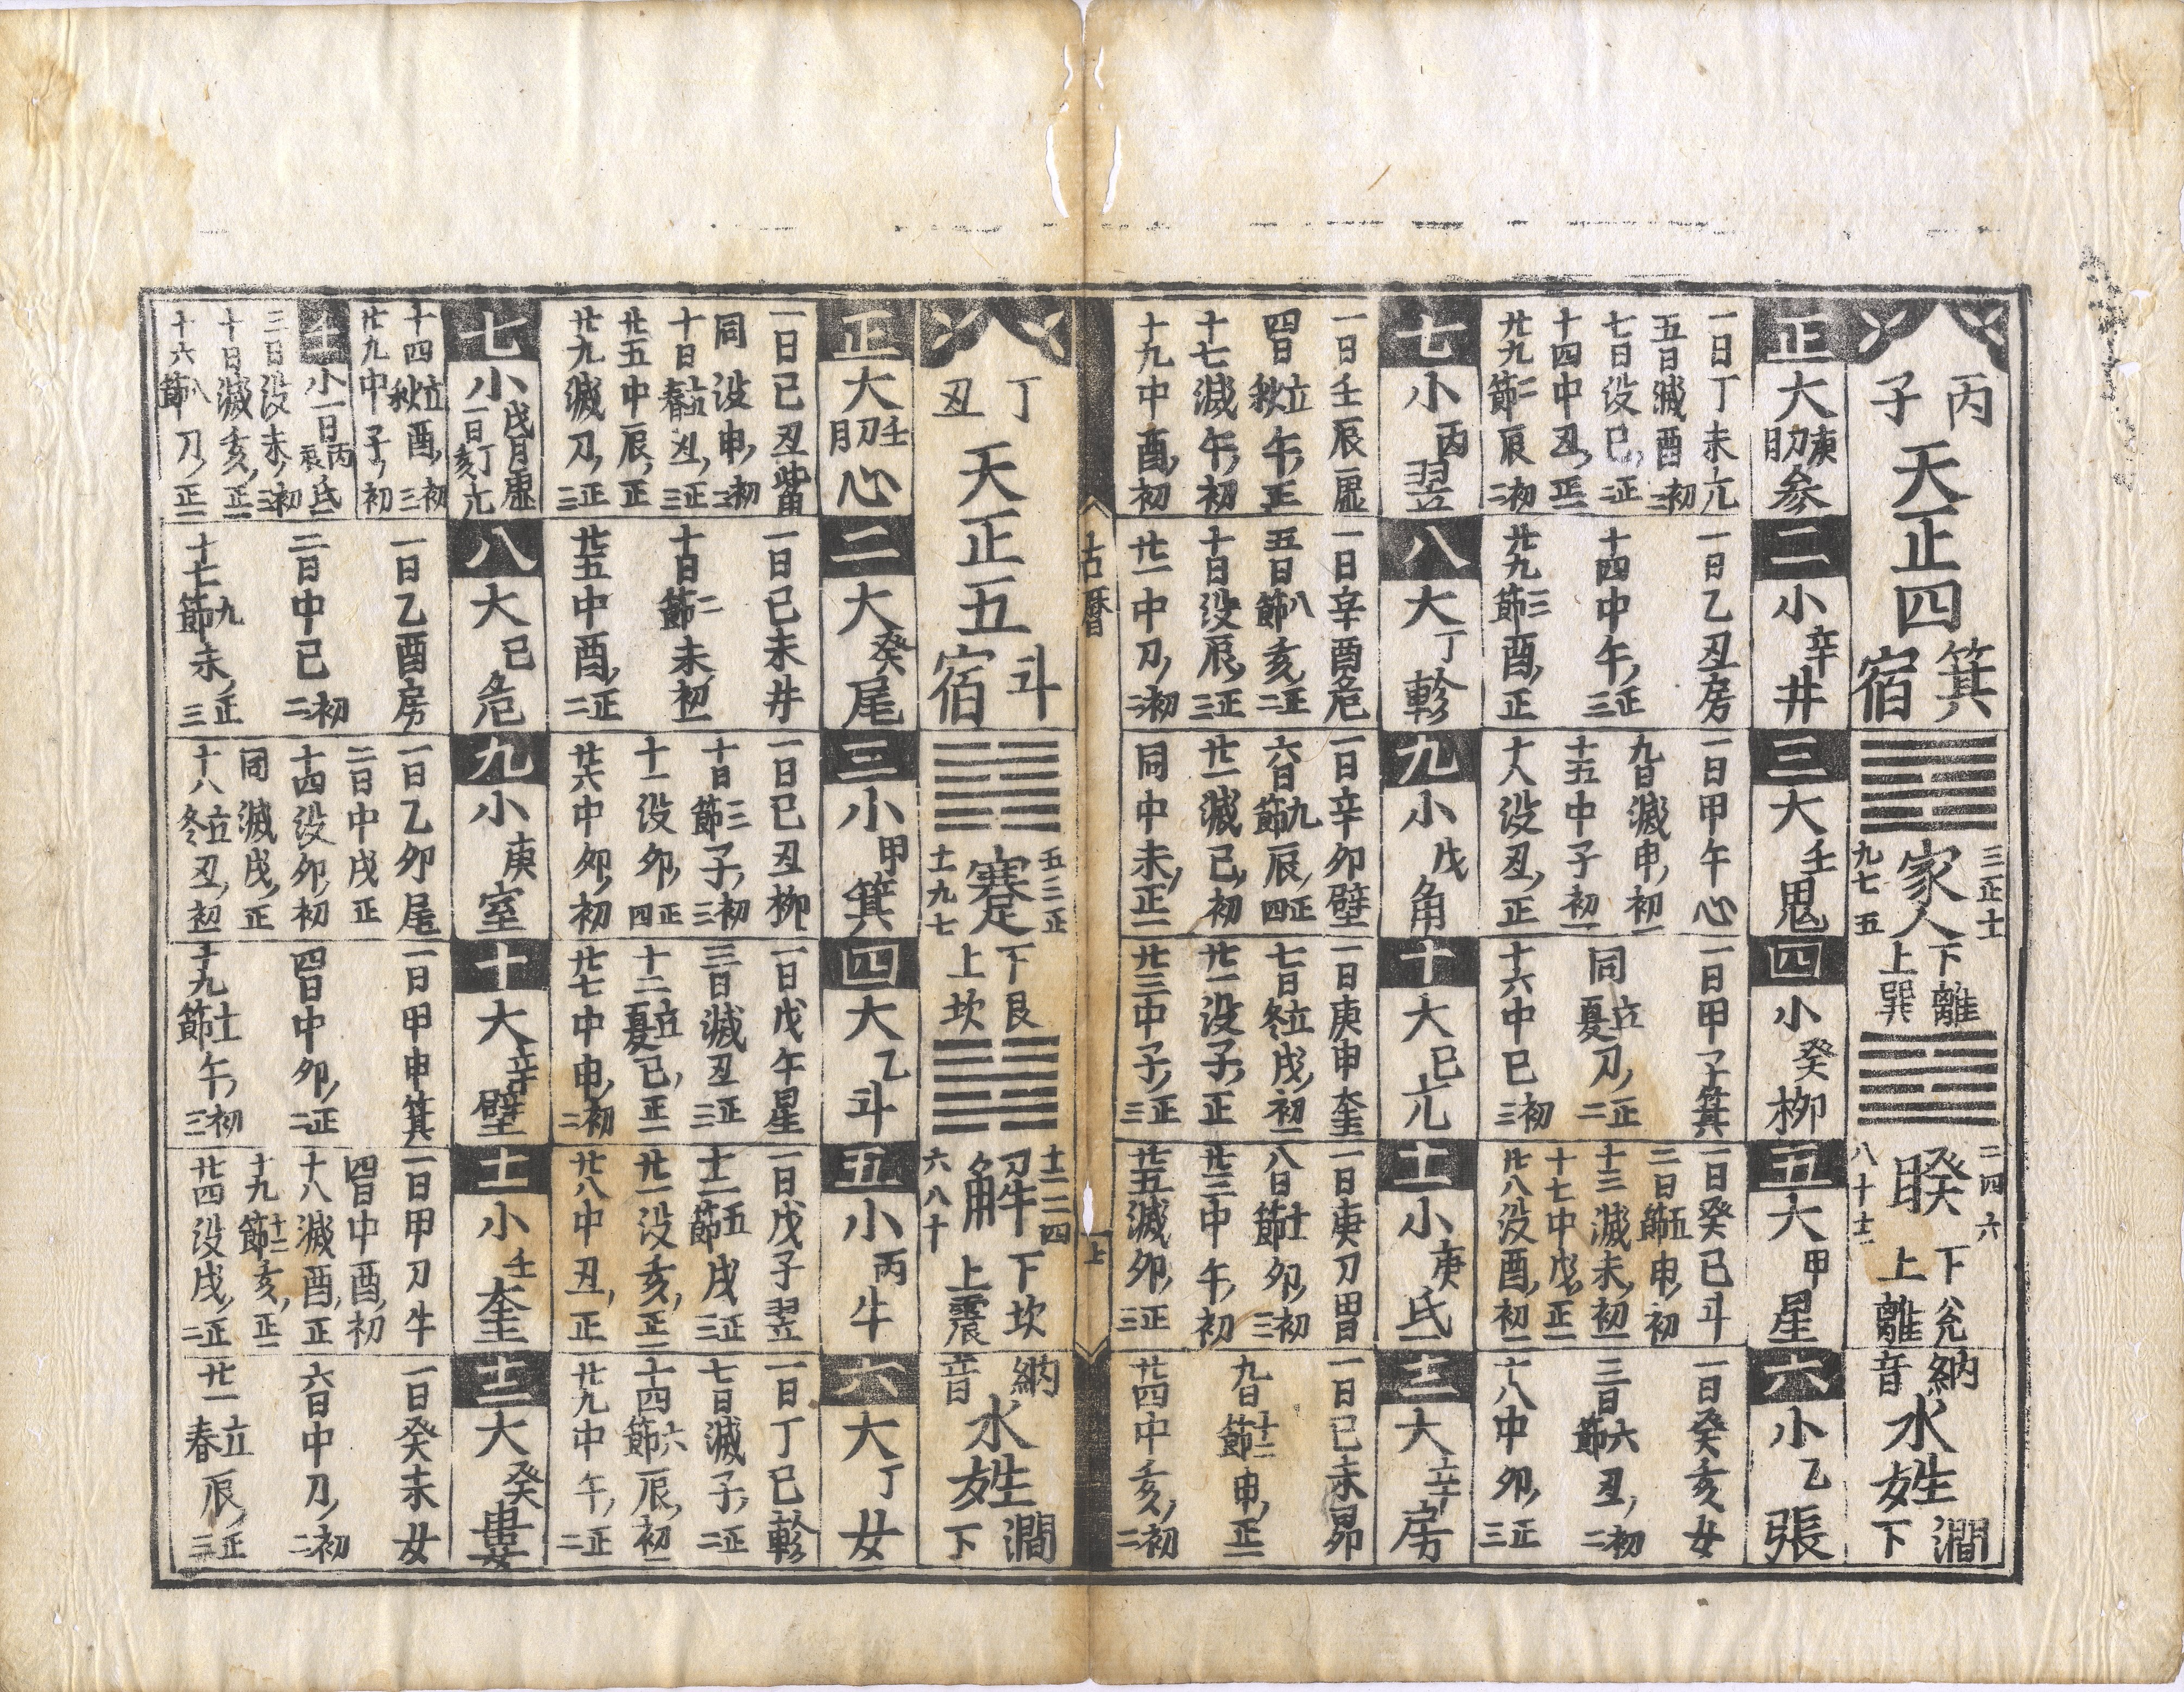 丙子
天正四
箕宿
家人
三正十一
九七五
下離
上巽
睽
二四六
八十十二
下兊
上離
納音
水姓
澗下
正大庚刀月参
一日丁未亢
五日滅酉初二
七日没巳正二
十四中丑正一
廿九二節辰初二
二小辛井
一日乙丑房
十四中午正三
廿九三節酉正
三大壬鬼
一日甲午心
九日滅申初一
十五中子初一
十八没丑正
四小癸柳
一日甲子箕
同立夏刀正二
十六中巳初三
五大甲星
一日癸巳斗
二日五節申初
十三滅未初一
十七中戌正一
廿八没酉初一
六小乙張
一日癸亥女
三日六節丑初二
十八中卯正三
七小丙翌
一日壬辰虚
四日立秋午正
十七滅午初
十九中酉初
八大丁軫
一日辛酉危
五日八節亥正二
十日没辰正三
廿一中刀初二
九小戊角
一日辛卯壁
六日九節辰正四
廿一滅巳初
同中未正一
十大己亢
一日庚申奎
七日立冬戌初一
廿一没子正
廿三中子正三
十一小庚氐
一日庚刀胃
八日十一節卯初三
廿三中午初
廿五滅卯正三
十二大辛房
一日己未昴
九日十二節申正一
廿四中亥初二
古曆
上
丁丑
天正五
斗宿
蹇
五三正
十一九七
下艮
上坎
解
十二二四
六八十
下坎
上震
納音
水姓
澗下
正大壬刀月心
一日己丑觜
同没申初三
十日立春丑正三
廿五中辰正
廿九滅刀正三
二大癸尾
一日己未井
十日二節未初一
廿五中酉正二
三小甲箕
一日己丑柳
十日三節子初三
十一没卯正四
廿六中卯初
四大乙斗
一日戊午星
三日滅丑正三
十二立夏巳正一
廿七中申初二
五小丙牛
一日戊子翌
十二五節戌正三
廿一没亥正二
廿八中丑正
六大丁女
一日丁巳軫
七日滅子正二
十四六節辰初一
廿九中午正二
七小戊月虚
一日丁亥亢
十四立秋酉初三
廿九中子初
七小一日丙辰氐
三日没未初三
十日滅亥正一
十六八節刀正二
八大己危
一日乙酉房
二日中巳初二
十七九節未正三
九小庚室
一日乙卯尾
二日中戌正
十四没卯初
同滅戌正
十八立冬丑初
十大辛壁
一日甲申箕
四日中卯正二
十九十一節午初三
十一小壬奎
一日甲刀牛
四日中酉初
十八滅酉正
十九十二節亥正一
廿四没戌正二
十二大癸婁
一日癸未女
六日中刀初二
廿一立春辰正三